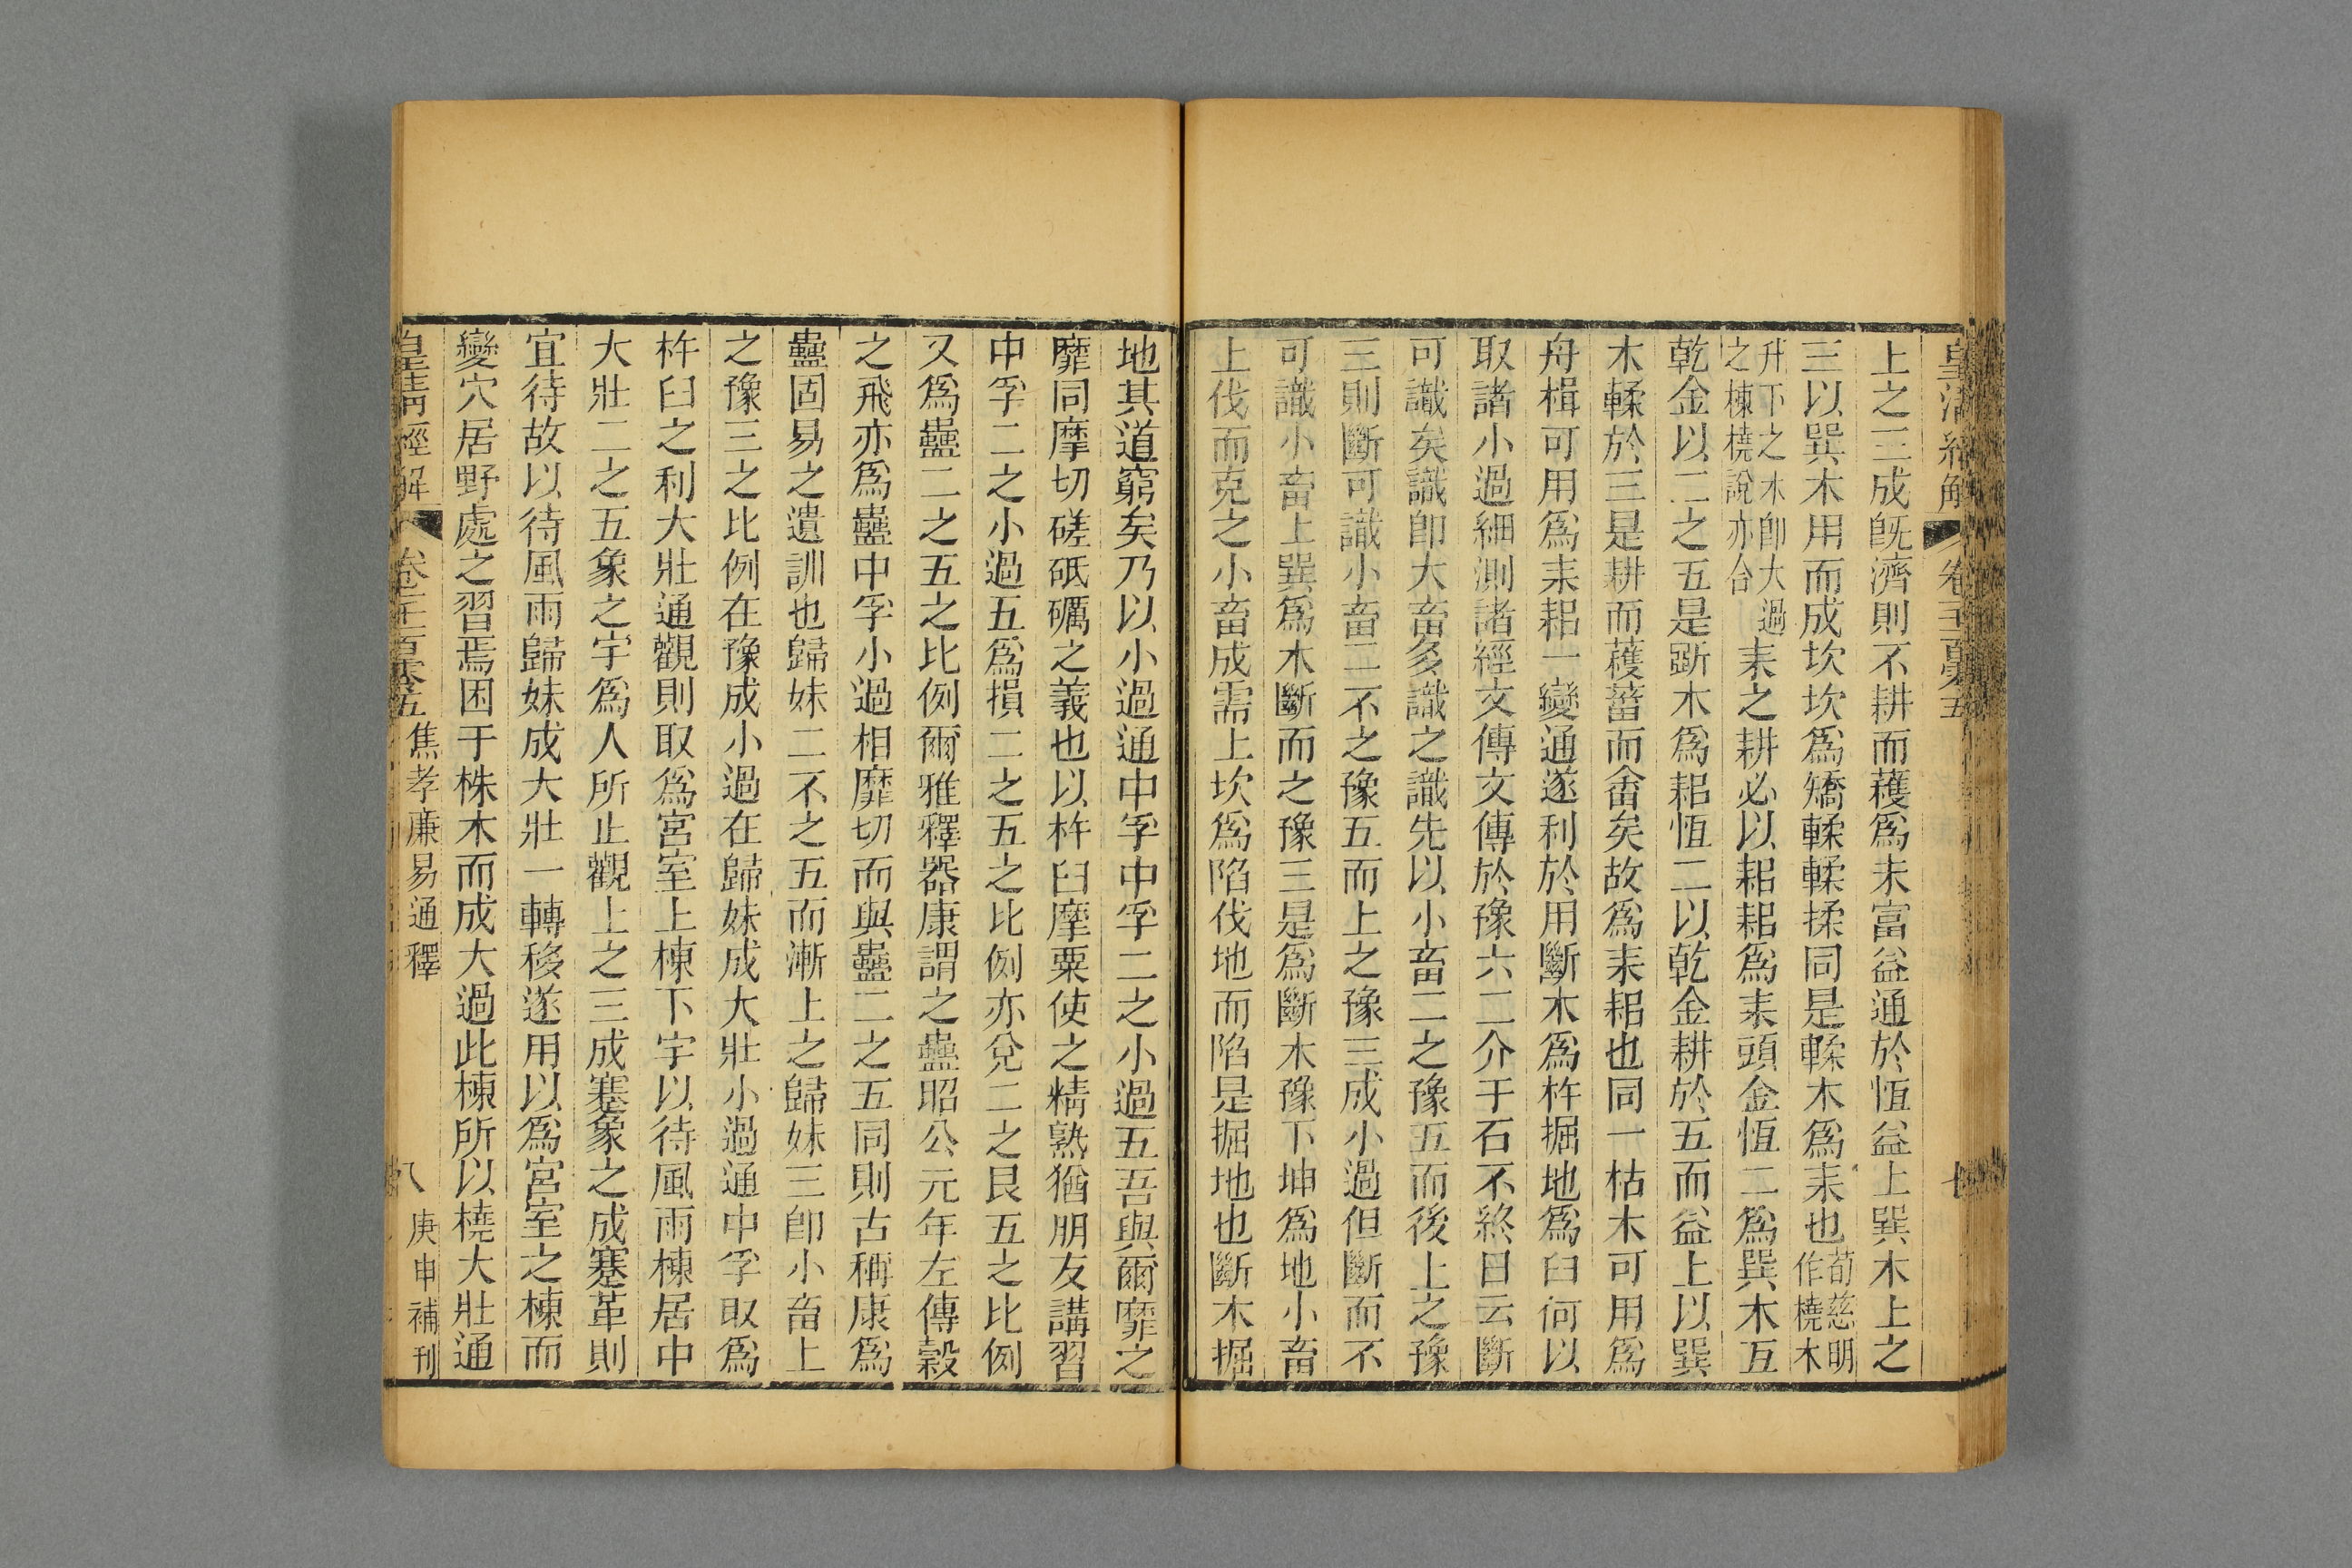 皇清經解
卷
上之三成旣濟則不耕而穫爲未富益通於恆益上巽木上之
三以巽木用而成坎坎爲矯輮輮揉同是輮木爲耒也荀慈明作橈木
升下之木卽大過之棟橈說亦合耒之耕必以耜耜爲耒頭金恆二爲巽木互
乾金以二之五是斲木爲耜恆二以乾金耕於五而益上以巽
木輮於三是耕而穫菑而畬矣故爲耒耜也同一枯木可用爲
舟楫可用爲耒耜一變通遂利於用斷木爲杵掘地爲臼何以
取諸小過細測諸經文傳文傳於豫六二介于石不終日云斷
可識矣識卽大畜多識之識先以小畜二之豫五而後上之豫
三則斷可識小畜二不之豫五而上之豫三成小過但斷而不
可識小畜上巽爲木斷而之豫三是爲斷木豫下坤爲地小畜
上伐而克之小畜成需上坎爲陷伐地而陷是掘地也斷木掘
地其道窮矣乃以小過通中孚中孚二之小過五吾與爾靡之
靡同摩切磋砥礪之義也以杵臼摩粟使之精熟猶朋友講習
中孚二之小過五爲損二之五之比例亦兌二之艮五之比例
又爲蠱二之五之比例爾雅釋器康謂之蠱昭公元年左傳穀
之飛亦爲蠱中孚小過相靡切而與蠱二之五同則古稱康爲
蠱固易之遺訓也歸妹二不之五而漸上之歸妹三卽小畜上
之豫三之比例在豫成小過在歸妹成大壯小過通中孚取爲
杵臼之利大壯通觀則取爲宮室上棟下宇以待風雨棟居中
大壯二之五象之宇爲人所止觀上之三成蹇象之成蹇革則
宜待故以待風雨歸妹成大壯一轉移遂用以爲宮室之棟而
變穴居野處之習焉困于株木而成大過此棟所以橈大壯通
皇清經解
卷一千一百零五
焦孝廉易通釋
八
庚申補刊